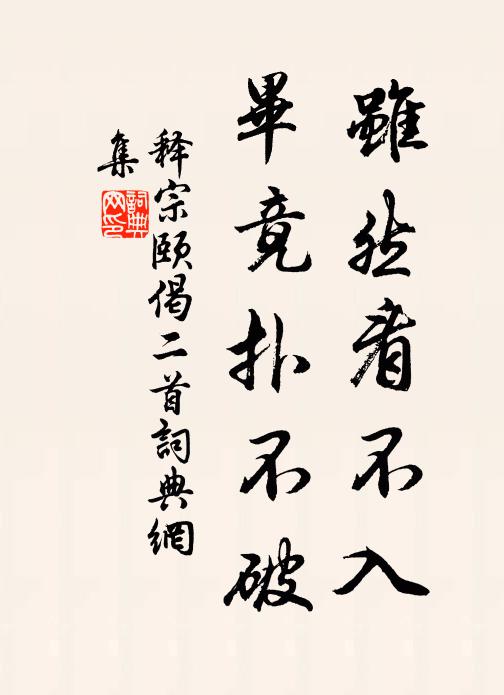 雖然看不入
畢竟扑不破
释宗颐偈二首詞典網
集
詞典網印